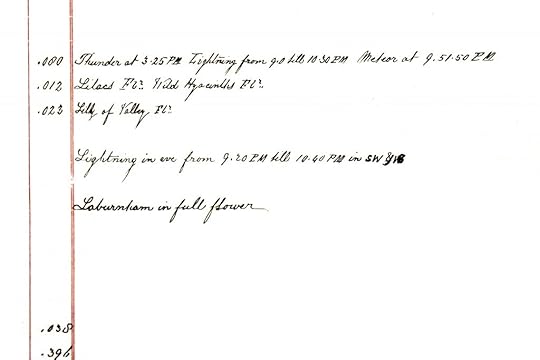 .080 Thunder at 3.25 PM Lightning from 9.0 till 10.30 PM Meteor at 9.51.50 PM
.012 Lilacs Fl. Wild Hyacinths Fl.
.023 Lilly of Valley Fl.
Lightning in eve from 9.20 PM till 10.40 PM in SW
Laburnham in full flower
.038
.396